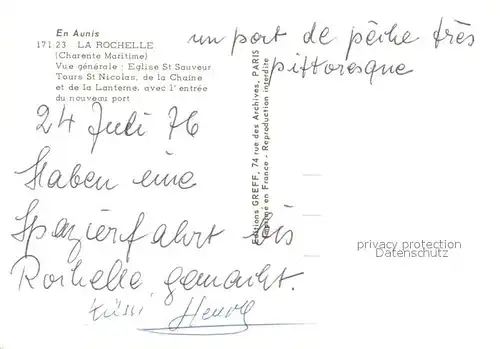 En Aunis
171.23 LA ROCHELLE
(Charente Maritime)
Vue générale : Eglise St Sauveur
Tours St Nicolas, de la Chaîne
et de la Lanterne, avec l'entrée
du nouveau port
un port de pêche très
pittoresque
24 Juli 76
Haben eine
Spazierfahrt bis
Rochelle gemacht.
Henry
Editions GREFF, 74 rue des Archives, PARIS
Imprimé en France - Reproduction interdite
privacy protection
Datenschutz